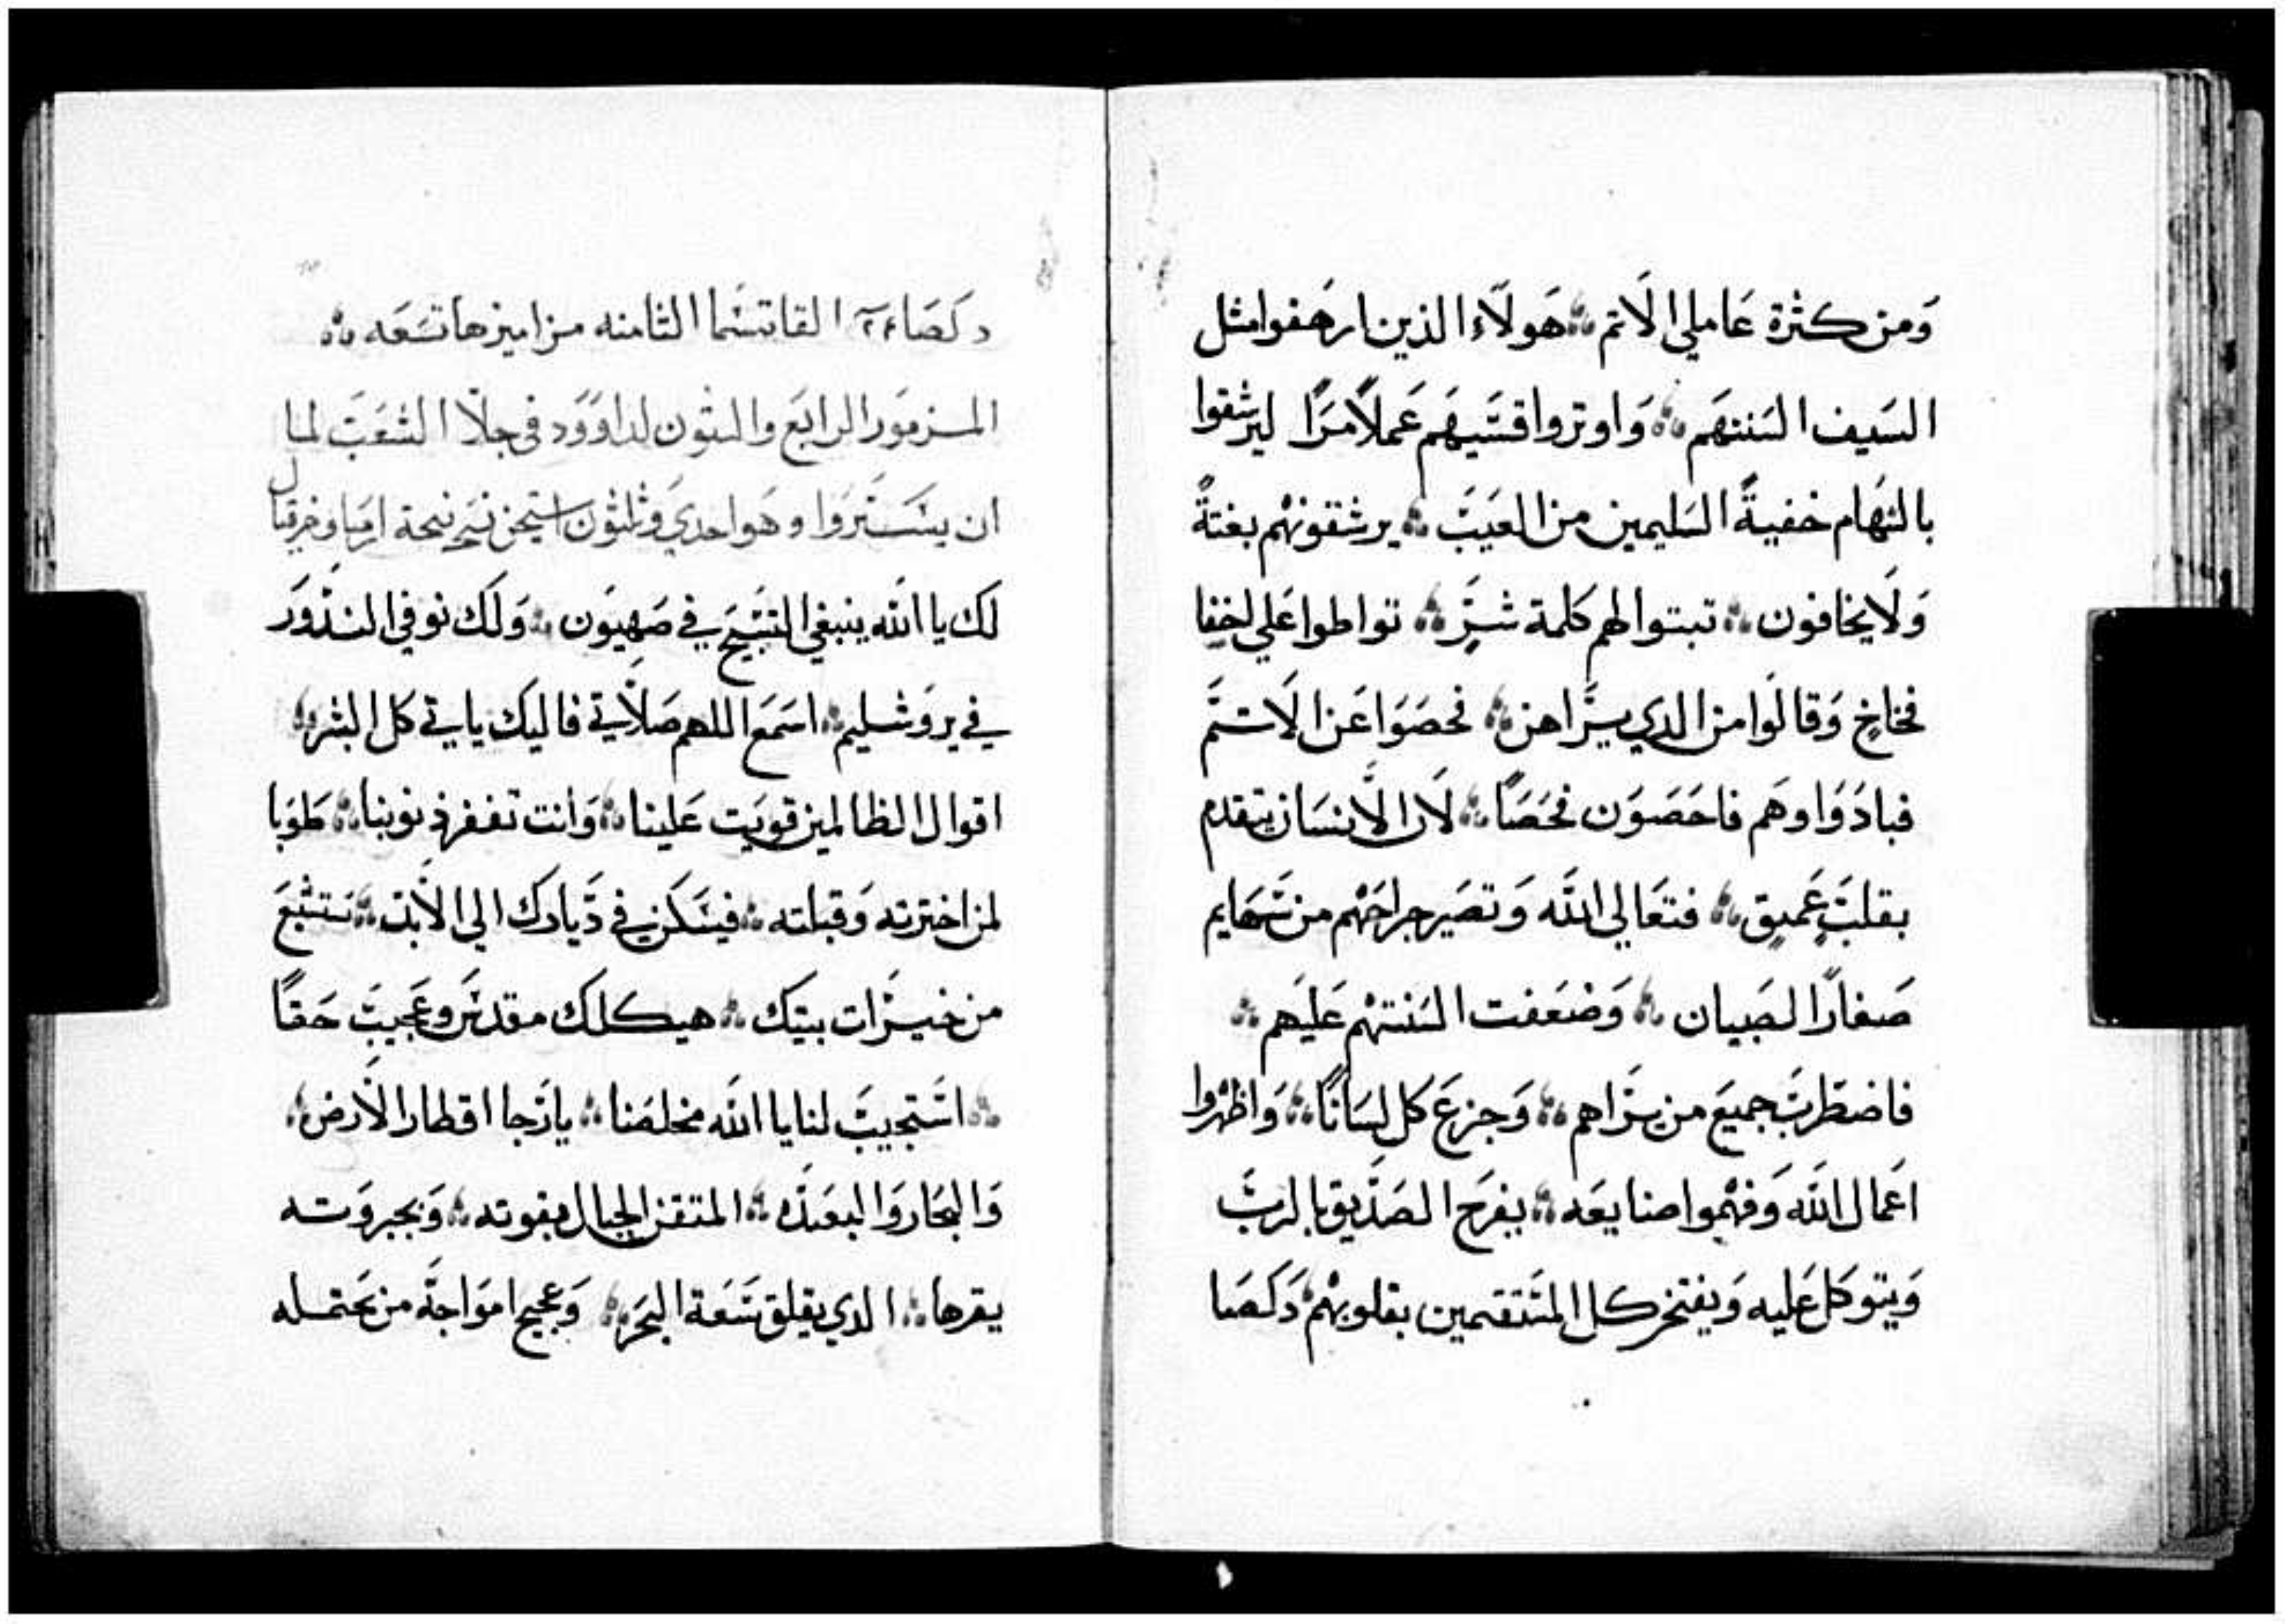 وَمن كثرة عَاملي الَاثم ؞ هَولَاء الذين ارهَفوا مثل
السَيف السَنتهَم ؞ وَاوتروا قسَيهَم عَملاً مرَاً ليرشقوا
بالسَهَام خفيةً السَليمين من العَيبَ ؞ يرشقونهْم بغتةً
وَلَا يخافون ؞ تبتوا لهم كلمة شرَ ؞ تواطوا عَلي اخفا
فخاخٍ وَقالوَا من الدي يرَاهن ؞ فحصَوَا عَن الَاتم
فبادَوَا وهَم فاحَصَوَن فحَصَاً ؞ لَان الَانسَان يتقدم
بقلبَ عَميق ؞ فتعَالي اللَه وَتصَير جراحَهْم من سَهَام
صَغارَ الصَبيان ؞ وَضعَفت السَنتهْم عَليَهم ؞
فاضطربَ جميَع من يرَاهم ؞ وَجزعَ كل انسَانَاً ؞ وَاظهرْوا
اعَمال اللَه وَفهْموا صنايعَه ؞ يفرَح الصَدَيق بالربَ
وَيتوكَل عَليه وَيفتخر كل المسَتقمين بقلوبهْم دَكَصَا
دكَصَاء ٢٢ القاتسَما الثامنه مزاميرها تسَعَه ؞
المزموَر الرابَع والسَتون لداوَوَد في جلَا الشعَبَ لما
ان ينسَتَروَا وهَو احدي وَثلثون استيحن تسَبحة ارميا وخرقيال
لك يا اللَه ينبغي التسَبيَح في صَهيوَن ؞ وَلَك نوفي النذوَر
في يروَشليم ؞ اسَمَع اللهم صَلَاتي فاليك ياتي كل البشر ؞
اقوال الظالمين قويَت عَلينا ؞ وَانت تغفر ذنوبنا ؞ طوَبا
لمن اخترته وَقبلته ؞ فيسَكن في دَيارك الي الَابد ؞ نشبَع
من خيرَات بيتك ؞ هيكلك مقدسَ وعَجيبَ حَقاً
؞ اسَتجيبَ لنا يا اللَه مخلصَنا ؞ يا رَجا اقطار الَارض ؞
وَالبحَار وَالبعَيدَه ؞ المتقن الجبال بقوته ؞ وَبجبروَته
يقرها ؞ الدي يقلق سَعَة البحَر ؞ وَعجيج اموَاجهَ من يحَتمله